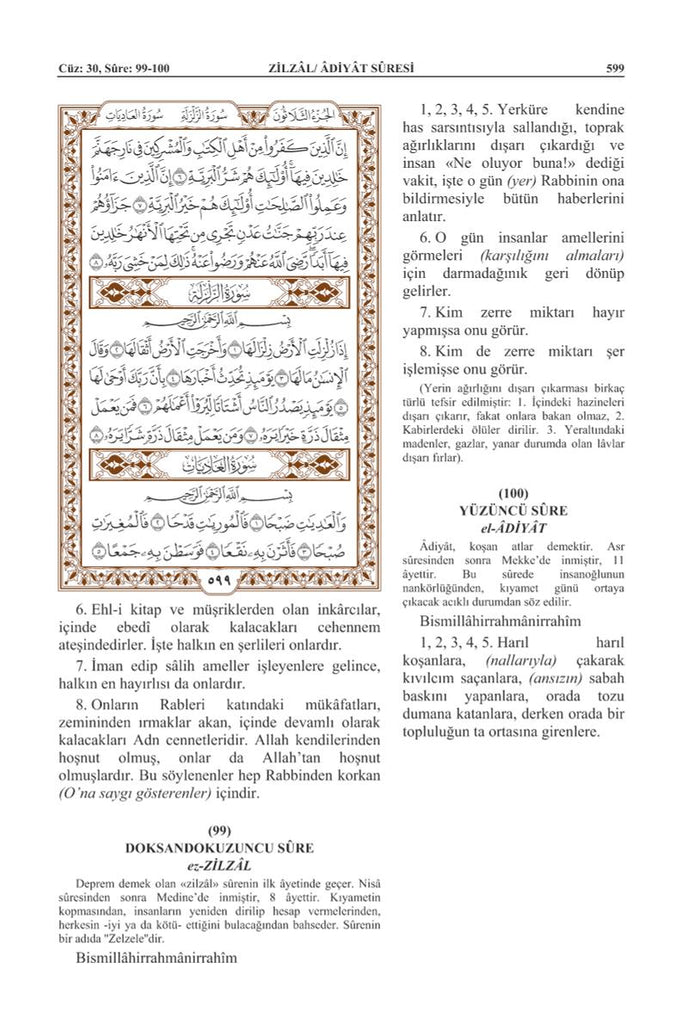 Cüz: 30, Sûre: 99-100
ZİLZÂL/ ÂDİYÂT SÛRESİ
599
الجزء الثلاثون
سورة الزلزلة
سورة العاديات
إِنَّ ٱلَّذِينَ كَفَرُوا۟ مِنْ أَهْلِ ٱلْكِتَٰبِ وَٱلْمُشْرِكِينَ فِى نَارِ جَهَنَّمَ
خَٰلِدِينَ فِيهَآ أُو۟لَٰٓئِكَ هُمْ شَرُّ ٱلْبَرِيَّةِ ٦ إِنَّ ٱلَّذِينَ ءَامَنُوا۟
وَعَمِلُوا۟ ٱلصَّٰلِحَٰتِ أُو۟لَٰٓئِكَ هُمْ خَيْرُ ٱلْبَرِيَّةِ ٧ جَزَآؤُهُمْ
عِندَ رَبِّهِمْ جَنَّٰتُ عَدْنٍ تَجْرِى مِن تَحْتِهَا ٱلْأَنْهَٰرُ خَٰلِدِينَ
فِيهَآ أَبَدًا رَّضِىَ ٱللَّهُ عَنْهُمْ وَرَضُوا۟ عَنْهُ ذَٰلِكَ لِمَنْ خَشِىَ رَبَّهُۥ ٨
سورة الزلزلة
بِسْمِ ٱللَّهِ ٱلرَّحْمَٰنِ ٱلرَّحِيمِ
إِذَا زُلْزِلَتِ ٱلْأَرْضُ زِلْزَالَهَا ١ وَأَخْرَجَتِ ٱلْأَرْضُ أَثْقَالَهَا ٢ وَقَالَ
ٱلْإِنسَٰنُ مَا لَهَا ٣ يَوْمَئِذٍ تُحَدِّثُ أَخْبَارَهَا ٤ بِأَنَّ رَبَّكَ أَوْحَىٰ لَهَا
٥ يَوْمَئِذٍ يَصْدُرُ ٱلنَّاسُ أَشْتَاتًا لِّيُرَوْا۟ أَعْمَٰلَهُمْ ٦ فَمَن يَعْمَلْ
مِثْقَالَ ذَرَّةٍ خَيْرًا يَرَهُۥ ٧ وَمَن يَعْمَلْ مِثْقَالَ ذَرَّةٍ شَرًّا يَرَهُۥ ٨
سورة العاديات
بِسْمِ ٱللَّهِ ٱلرَّحْمَٰنِ ٱلرَّحِيمِ
وَٱلْعَٰدِيَٰتِ ضَبْحًا ١ فَٱلْمُورِيَٰتِ قَدْحًا ٢ فَٱلْمُغِيرَٰتِ
صُبْحًا ٣ فَأَثَرْنَ بِهِۦ نَقْعًا ٤ فَوَسَطْنَ بِهِۦ جَمْعًا ٥
٥٩٩
6. Ehl-i kitap ve müşriklerden olan inkârcılar,
içinde ebedî olarak kalacakları cehennem
ateşindedirler. İşte halkın en şerlileri onlardır.
7. İman edip sâlih ameller işleyenlere gelince,
halkın en hayırlısı da onlardır.
8. Onların Rableri katındaki mükâfatları,
zemininden ırmaklar akan, içinde devamlı olarak
kalacakları Adn cennetleridir. Allah kendilerinden
hoşnut olmuş, onlar da Allah’tan hoşnut
olmuşlardır. Bu söylenenler hep Rabbinden korkan
(O’na saygı gösterenler) içindir.
(99)
DOKSANDOKUZUNCU SÛRE
ez-ZİLZÂL
Deprem demek olan «zilzâl» sûrenin ilk âyetinde geçer. Nisâ
sûresinden sonra Medine’de inmiştir, 8 âyettir. Kıyametin
kopmasından, insanların yeniden dirilip hesap vermelerinden,
herkesin -iyi ya da kötü- ettiğini bulacağından bahseder. Sûrenin
bir adıda "Zelzele"dir.
Bismillâhirrahmânirrahîm
1, 2, 3, 4, 5. Yerküre kendine
has sarsıntısıyla sallandığı, toprak
ağırlıklarını dışarı çıkardığı ve
insan «Ne oluyor buna!» dediği
vakit, işte o gün (yer) Rabbinin ona
bildirmesiyle bütün haberlerini
anlatır.
6. O gün insanlar amellerini
görmeleri (karşılığını almaları)
için darmadağınık geri dönüp
gelirler.
7. Kim zerre miktarı hayır
yapmışsa onu görür.
8. Kim de zerre miktarı şer
işlemişse onu görür.
(Yerin ağırlığını dışarı çıkarması birkaç
türlü tefsir edilmiştir: 1. İçindeki hazineleri
dışarı çıkarır, fakat onlara bakan olmaz, 2.
Kabirlerdeki ölüler dirilir. 3. Yeraltındaki
madenler, gazlar, yanar durumda olan lâvlar
dışarı fırlar).
(100)
YÜZÜNCÜ SÛRE
el-ÂDİYÂT
Âdiyât, koşan atlar demektir. Asr
sûresinden sonra Mekke’de inmiştir, 11
âyettir. Bu sûrede insanoğlunun
nankörlüğünden, kıyamet günü ortaya
çıkacak acıklı durumdan söz edilir.
Bismillâhirrahmânirrahîm
1, 2, 3, 4, 5. Harıl harıl
koşanlara, (nallarıyla) çakarak
kıvılcım saçanlara, (ansızın) sabah
baskını yapanlara, orada tozu
dumana katanlara, derken orada bir
topluluğun ta ortasına girenlere.